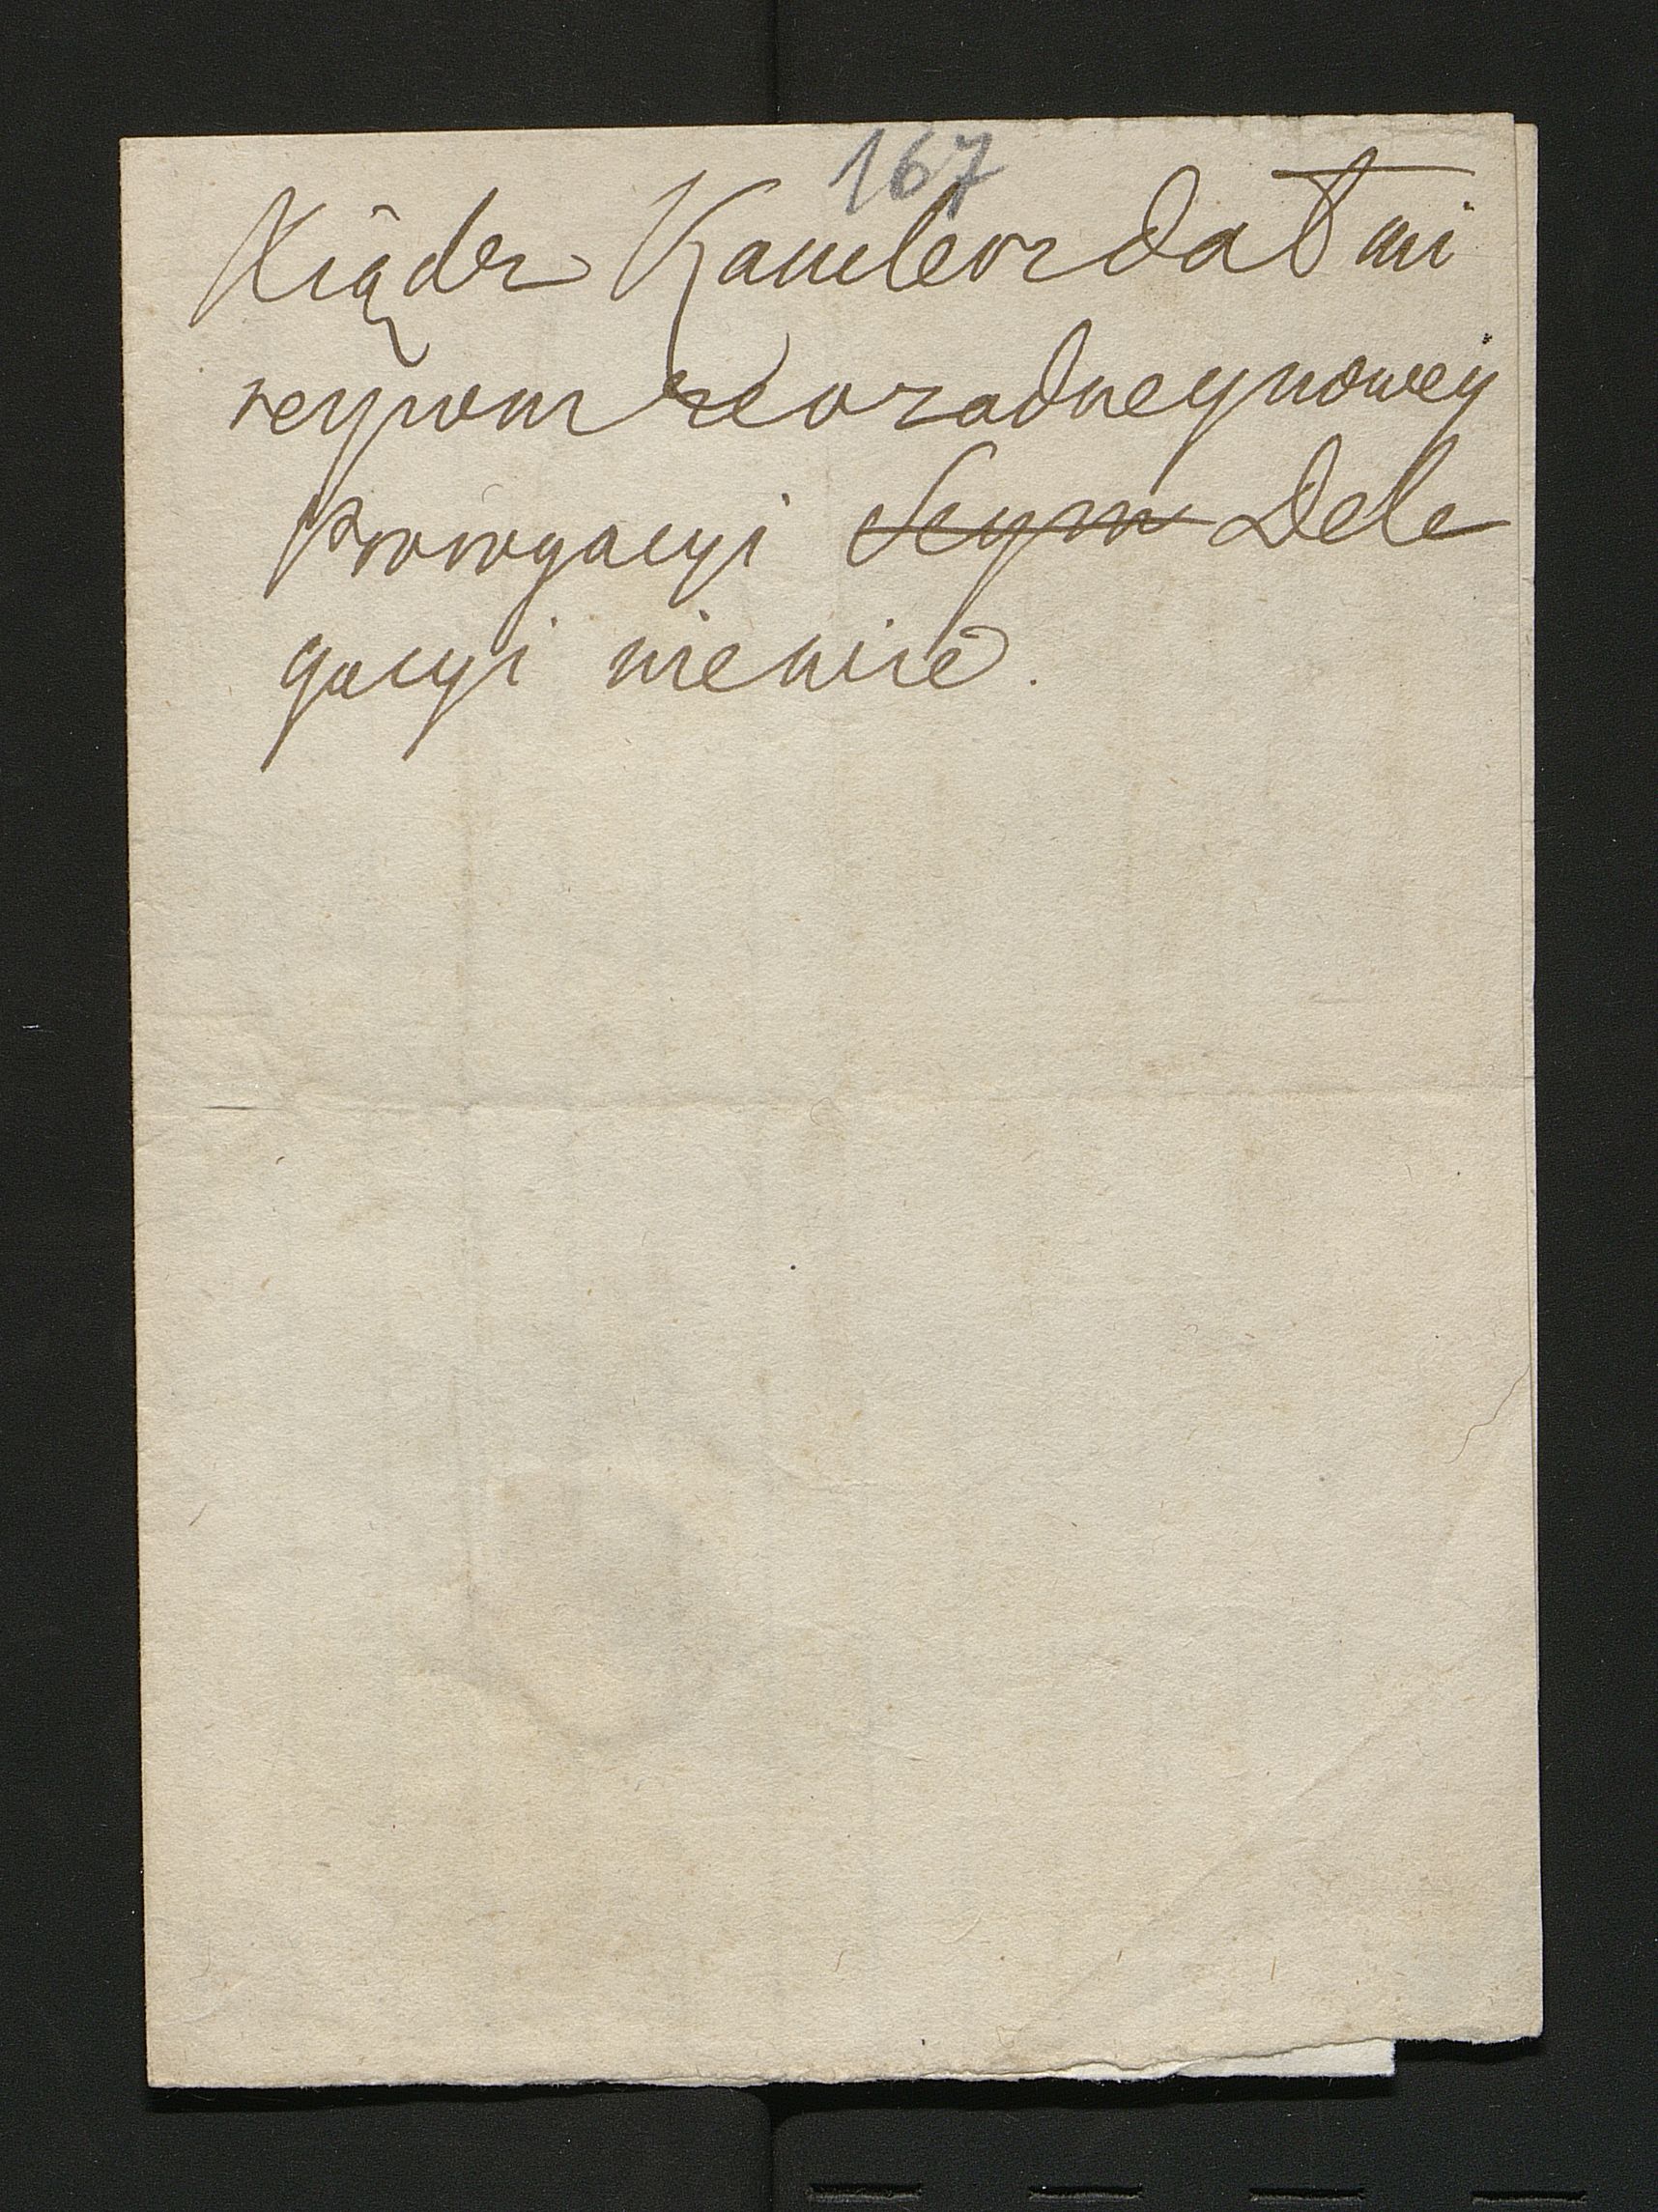 167
Xiądz Kanclerz dał mi
respons że o żadney nowey
Prorogacyi <s>Seym</s> Dele
gacyi niewié.